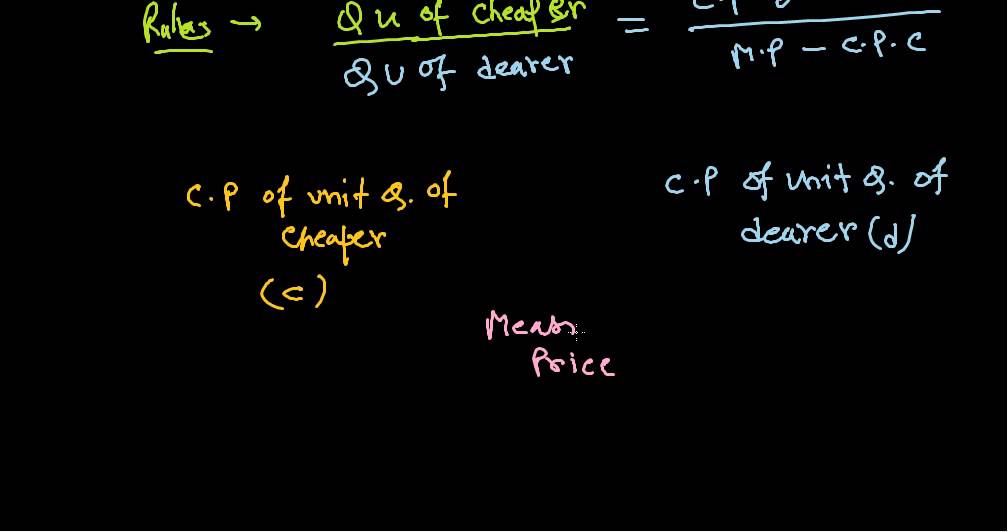 Rules → Qu of cheaper =
Qu of dearer M.P - C.P.C
C.P of unit Q. of
cheaper
(c)
C.P of unit Q. of
dearer (d)
Mean
Price